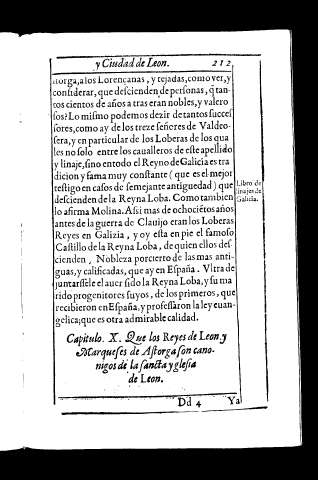 y Ciudad de Leon. 212
storga, a los Lorençanas, y tejadas, como ver, y
considerar, que descienden de personas, q̃ tan
tos cientos de años a tras eran nobles, y valero
sos? Lo mismo podemos dezir de tantos succes
sores, como ay de los treze señeres de Valdeo-
sera, y en particular de los Loberas de los qua
les no solo entre los caualleros de este apellido
y linaje, sino entodo el Reyno de Galicia es tra
dicion y fama muy constante (que es el mejor
testigo en casos de semejante antiguedad) que
descienden de la Reyna Loba. Como tambien
lo afirma Molina. Assi mas de ochociẽtos años
antes de la guerra de Clauijo eran los Loberas
Reyes en Galizia, y oy esta en pie el famoso
Castillo de la Reyna Loba, de quien ellos des
cienden, Nobleza por cierto de las mas anti-
guas, y calificadas, que ay en España. Vltra de
juntarsele el auer sido la Reyna Loba, y su ma
rido progenitores suyos, de los primeros, que
recibieron en España, y professaron la ley euan-
gelica; que es otra admirable calidad.
Libro de
linajes de
Galicia.
Capitulo. X. Que los Reyes de Leon, y
Marqueses de Astorga son cano-
nigos de la sancta yglesia
de Leon.
Dd 4 Ya